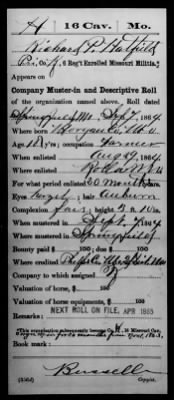 H | 16 Cav. | Mo.
Richard P. Hatfield
Pri, Co. , 6 Reg't Enrolled Missouri Militia.
Appears on
Company Muster-in and Descriptive Roll
of the organization named above. Roll dated
Springfield Mo. Sept 7, 1864.
Where born Morgan Co. Mo.
Age 18 y'rs; occupation Farmer
When enlisted Aug 29, 1864.
Where enlisted Rolla Mo.
For what period enlisted 20 months
Eyes Hazel; hair Auburn
Complexion fair; height 5 ft. 10 in.
When mustered in Sept. 7, 1864.
Where mustered in Springfield
Bounty paid $ 100; due $ 100
Where credited
To which company assigned
Valuation of horse, $ 100
Valuation of horse equipments, $ 100
Remarks: NEXT ROLL ON FILE, APR 1865
*This organization subsequently became Co. H, 16 Missouri Cav.
Book mark:
Russell
(356d) Copyist.